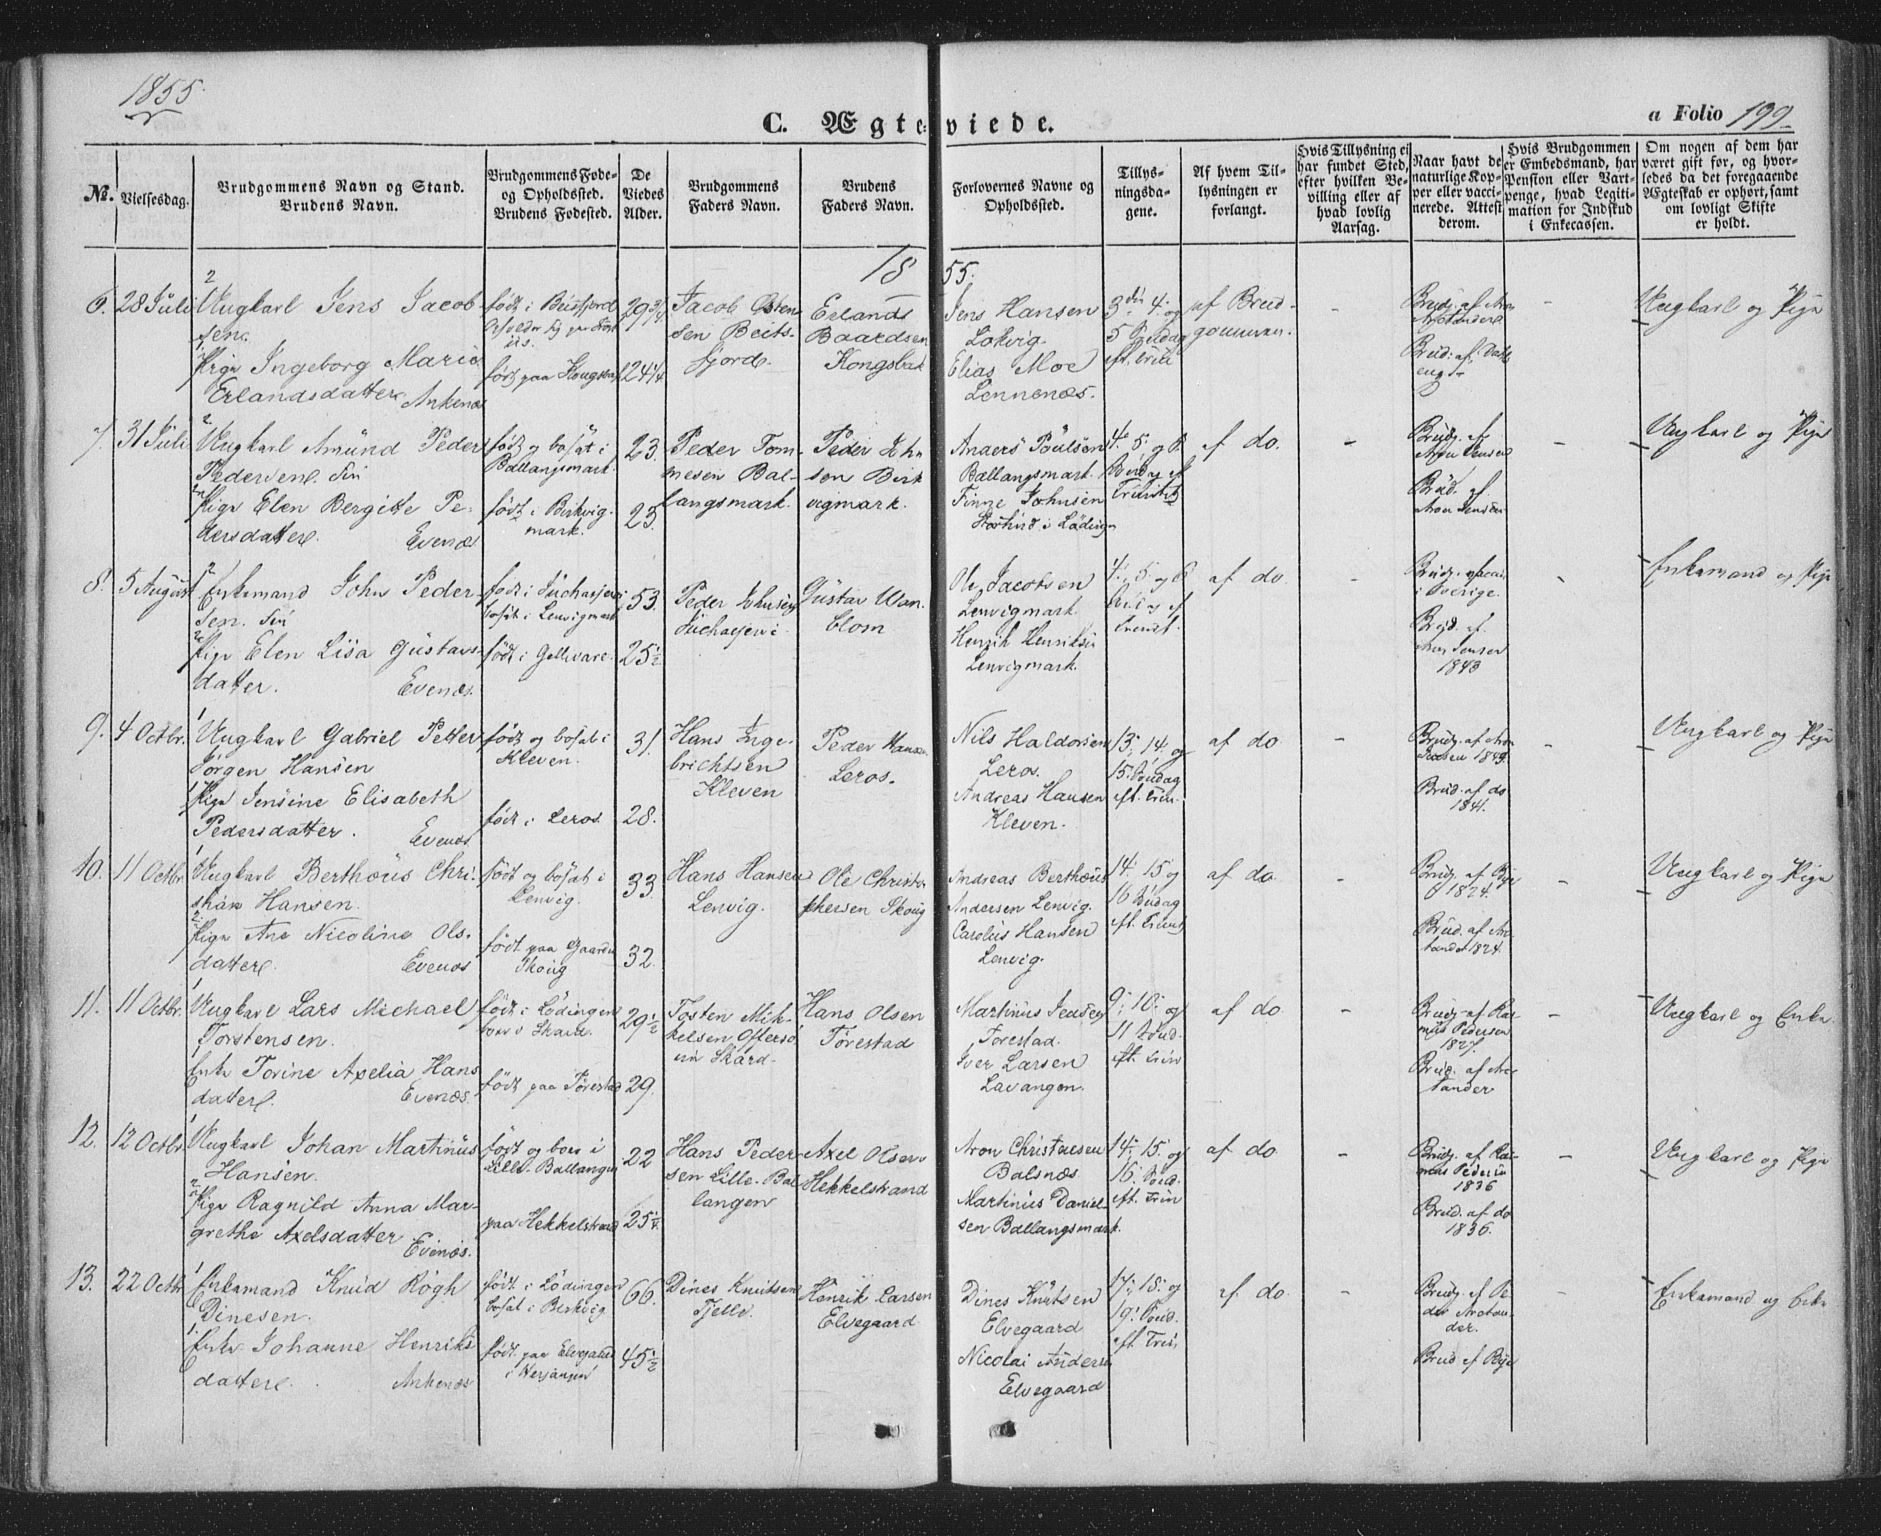 1855.
C. Ægteviede.
a Folio 199
No.
Vielsesdag.
Brudgommens Navn og Stand.
Brudens Navn.
Brudgommens Føde-
og Opholdssted.
Brudens Fødested.
De
Viedes
Alder.
Brudgommens
Faders Navn.
Brudens
Faders Navn.
Forlovernes Navne og
Opholdssted.
Tillys-
ningsda-
gene.
Af hvem Til-
lysningen er
forlangt.
Hvis Tillysning ei
har fundet Sted,
efter hvilken Be-
villing eller af
hvad lovlig
Aarsag.
Naar havt de
naturlige Kop-
per eller vacci-
nerede. Attest
derom.
Hvis Brudgommen
er Embedsmand, har
Pension eller Vart-
penge, hvad Legiti-
mation for Indskud
i Enkecassen.
Om nogen af dem har
været gift før, og hvor-
ledes da det foregaaende
Ægteskab er ophørt, samt
om lovligt Skifte
er holdt.
1855.
6. 28 Juli
2
Ungkarl Jens Jacob-
sen.
1
Pige Ingeborg Marie
Erlandsdatter Ankenæs
født i Beisfjord
født paa Kongsbak
29 3/4
24 1/4
Jacob Østen-
sen Beits-
fjord.
Erlands
Baardsen
Kongsbak
Jens Hansen
Lokvig.
Elias Moe
Lennenæs.
3die 4. og
5 Søndag
eft. Trin
af Brud-
gommen.
-
Brudg. af Aron
Brud: af
-
Ungkarl og Pige
7. 31 Juli
2
Ungkarl Amund Peder
Pedersen. Fin
2
Pige Elen Bergitte Pe-
dersdatter. Evenæs
født og bosat i
Ballangsmark.
født i Birkvig-
mark.
23.
23.
Peder Tom-
mesen Bal-
langsmark.
Peder John
sen Birk
vigmark.
Anders Poulsen
Ballangsmark.
Finne Johnsen
i Lødingen
4. 5. og 6.
Søndag ef
Trinit
af do.
-
Brudg. af
Aron Jensen
Brud. af
Aron Jensen
-
Ungkarl og Pige
8. 5 August
2
Enkemand John Peder-
sen. Fin
2
Pige Elen Lisa Gustavs-
datter. Evenæs.
født i
bosat i Lenvigmark
født i Gellivare.
53.
25 1/2
Peder Johnsen
Gustav Wan-
blom
Ole Jacobsen
Lenvigmark.
Henrik Henriksen
Lenvigmark.
4. 5. og 6
af do.
-
Brudg. vacci
i Sverige.
Brud. af.
Aron Jensen
1843
-
Enkemand og Pige
9. 4 Octbr.
1
Ungkarl Gabriel Petter
Jørgen Hansen
1
Pige Jensine Elisabeth
Pedersdatter. Evenæs
født og bosat i
Kleven.
født i Leros.
31.
28.
Hans Inge-
brichtsen
Kleven
Peder Hansen
Leros.
Nils Haldorsen
Leros.
Andreas Hansen
Kleven.
13. 14. og
15. Søndag
eft. Trin.
af do.
-
Brudg. af Aron
1849.
Brud. af do
1841.
-
Ungkarl og Pige
10. 11 Octbr
1
Ungkarl Berthous Chri-
stian Hansen.
2
Pige Ane Nicoline Ols-
datter. Evenæs
født og bosat i
Lenvig.
født paa Gaarden
Skoug
33.
32.
Hans Hansen
Lenvig.
Ole Christo-
phersen Skoug
Andreas Berthous
Andersen Lenvig.
Carolus Hansen
Lenvig.
14. 15 og
16 Søndag
eft. Trinit
af do
-
Brudg. af Bye
1824.
Brud. af Ar-
tander 1824.
-
Ungkarl og Pige
11. 11 Octbr.
1
Ungkarl Lars Michael
Torstensen.
1
Enke Torine Axelia Hans
datter. Evenæs.
født i Lødingen
boer i Skard.
født paa Forestad
29 1/2
29.
Tosten Mik-
kelsen
Skard.
Hans Olsen
Forestad
Martinus Jensen
Forestad.
Iver Larsen
Lavangen.
9. 10. og
11 Sønd.
eft. Trin
af do
-
Brudg. af Ras-
mus Pedersen
1827.
Brud. af Ar-
tander
-
Ungkarl og Enke
12. 12 Octbr
1
Ungkarl Johan Martinus
Hansen.
2
Pige Ragnild Anna Mar-
grethe Axelsdatter
Evenæs.
født og boer i
Lille-Ballangen
paa Hekkelstrand
22
25 1/4.
Hans Peder-
sen Lille-Bal
langen
Axel Olsen
Hekkelstrand
Aron Christensen
Balsnæs
Martinus Daniel-
sen Ballangsmark.
14. 15. og
16. Sønd.
eft. Trin
af do
-
Brudg. af Ras-
mus Pedersen
1836
Brud. af do
1836.
-
Ungkarl og Pige
13. 22 Octbr
1
Enkemand Knud Røgh
Dinesen.
1
Enke Johanne Henriks
datter. Ankenæs
født i Lødingen
bosat i Birkvig
født paa Elvegaard
i Herjangen
66.
45 1/2
Dines Knutsen
Tjelle.
Henrik Larsen
Elvegaard
Dines Knutsen
Elvegaard
Nicolai Anders
Elvegaard
17. 18. og
19. Sønd.
eft Trin
af do
-
Brudg. af Pe-
der Arctan-
der.
Brud af Bye
-
Enkemand og Enke